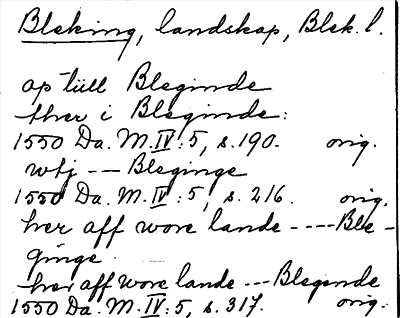 Bleking, landskap, Blek. l.
op till Bleginde
ther i Bleginde:
1550 Da. M. IV: 5, s. 190. orig.
wtj -- Bleginge
1550 Da. M. IV: 5, s. 216. orig.
her aff wore lande ---- Ble-
ginge.
her aff wore lande --- Bleginde
1550 Da. M. IV: 5, s. 317. orig.